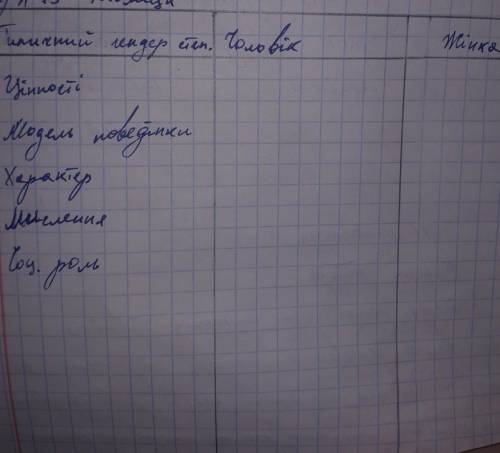 Типичний гендер стп. Чоловік Жінка
Цінності
Модель поведінки
Характер
Мислення
Соц. роль